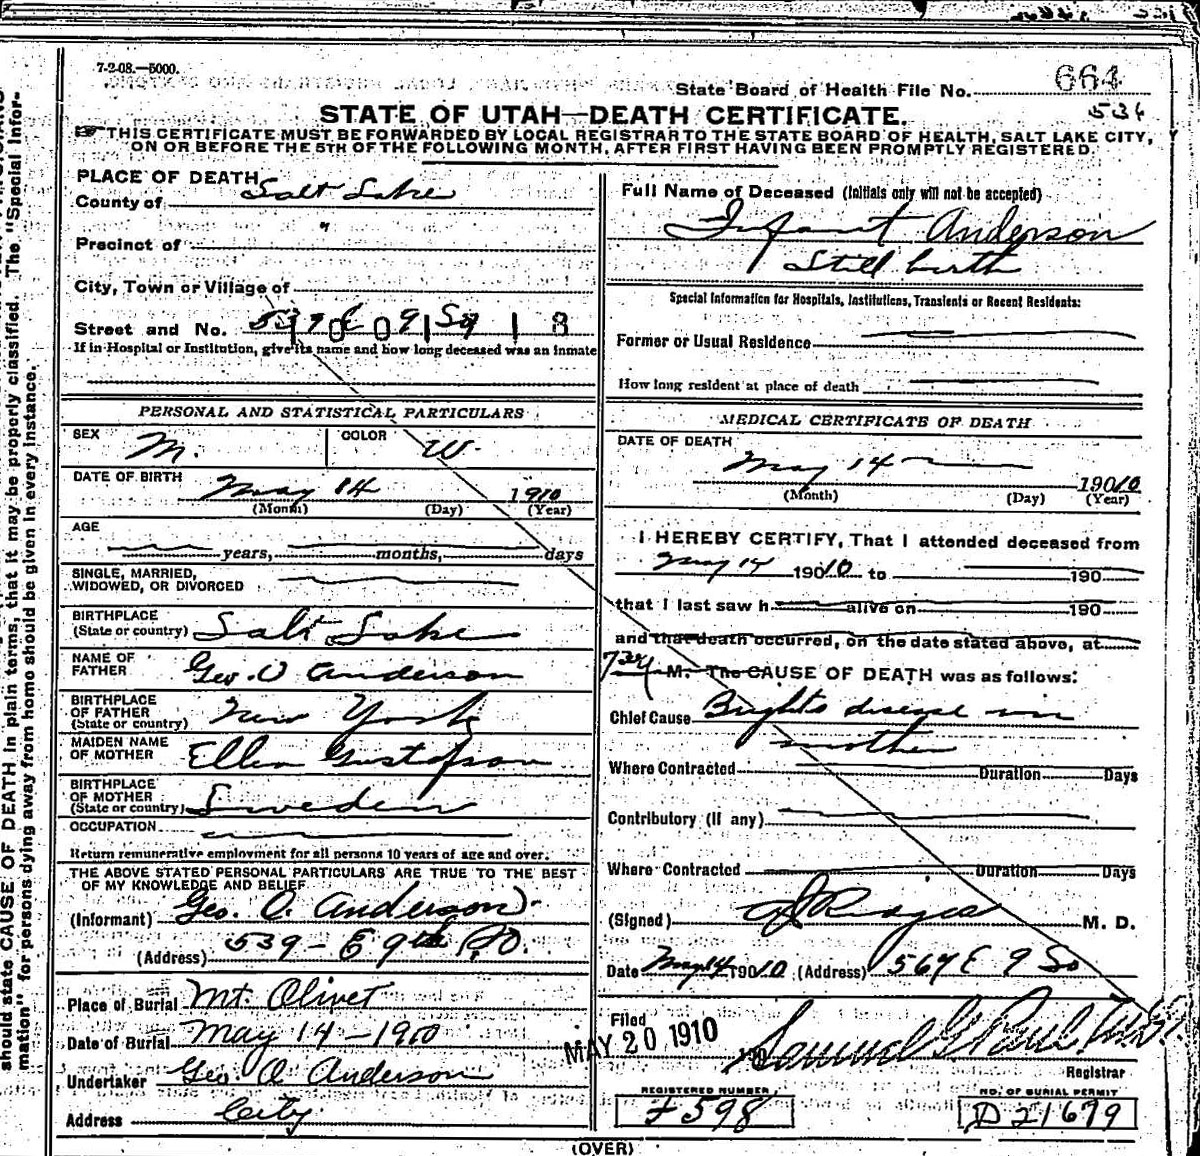 7-2-08.—5000.
State Board of Health File No. 664
536
STATE OF UTAH—DEATH CERTIFICATE.
THIS CERTIFICATE MUST BE FORWARDED BY LOCAL REGISTRAR TO THE STATE BOARD OF HEALTH, SALT LAKE CITY,
ON OR BEFORE THE 5TH OF THE FOLLOWING MONTH, AFTER FIRST HAVING BEEN PROMPTLY REGISTERED.
should state CAUSE OF DEATH in plain terms, that it may be properly classified. The "Special Infor-
mation" for persons dying away from home should be given in every instance.
PLACE OF DEATH
County of Salt Lake
Precinct of "
City, Town or Village of
Street and No. 539 E 9 So
If in Hospital or Institution, give its name and how long deceased was an inmate
PERSONAL AND STATISTICAL PARTICULARS
SEX M. COLOR W.
DATE OF BIRTH May 14 1910
(Month) (Day) (Year)
AGE
years, months, days
SINGLE, MARRIED,
WIDOWED, OR DIVORCED
BIRTHPLACE
(State or country) Salt Lake
NAME OF
FATHER Geo. O Anderson
BIRTHPLACE
OF FATHER
(State or country) New York
MAIDEN NAME
OF MOTHER Ellen Gustafson
BIRTHPLACE
OF MOTHER
(State or country) Sweden
OCCUPATION
Return remunerative employment for all persons 10 years of age and over.
THE ABOVE STATED PERSONAL PARTICULARS ARE TRUE TO THE BEST
OF MY KNOWLEDGE AND BELIEF
(Informant) Geo. O. Anderson.
(Address) 539 - E 9th So.
Place of Burial Mt. Olivet
Date of Burial May 14 - 1910
Undertaker Geo. O Anderson
Address City
Full Name of Deceased (Initials only will not be accepted)
Infant Anderson
Still birth
Special Information for Hospitals, Institutions, Transients or Recent Residents:
Former or Usual Residence
How long resident at place of death
MEDICAL CERTIFICATE OF DEATH
DATE OF DEATH
May 14 19010
(Month) (Day) (Year)
I HEREBY CERTIFY, That I attended deceased from
May 14 19010 to 190
that I last saw h alive on 190
and that death occurred, on the date stated above, at
M. The CAUSE OF DEATH was as follows:
Chief Cause Brights disease in
mother
Where Contracted Duration Days
Contributory (If any)
Where Contracted Duration Days
(Signed) M. D.
Date May 14 19010 (Address) 567 E 9 So
Filed
MAY 20 1910 190 Samuel G Paul
Registrar
REGISTERED NUMBER
598
NO. OF BURIAL PERMIT
D 21679
(OVER)